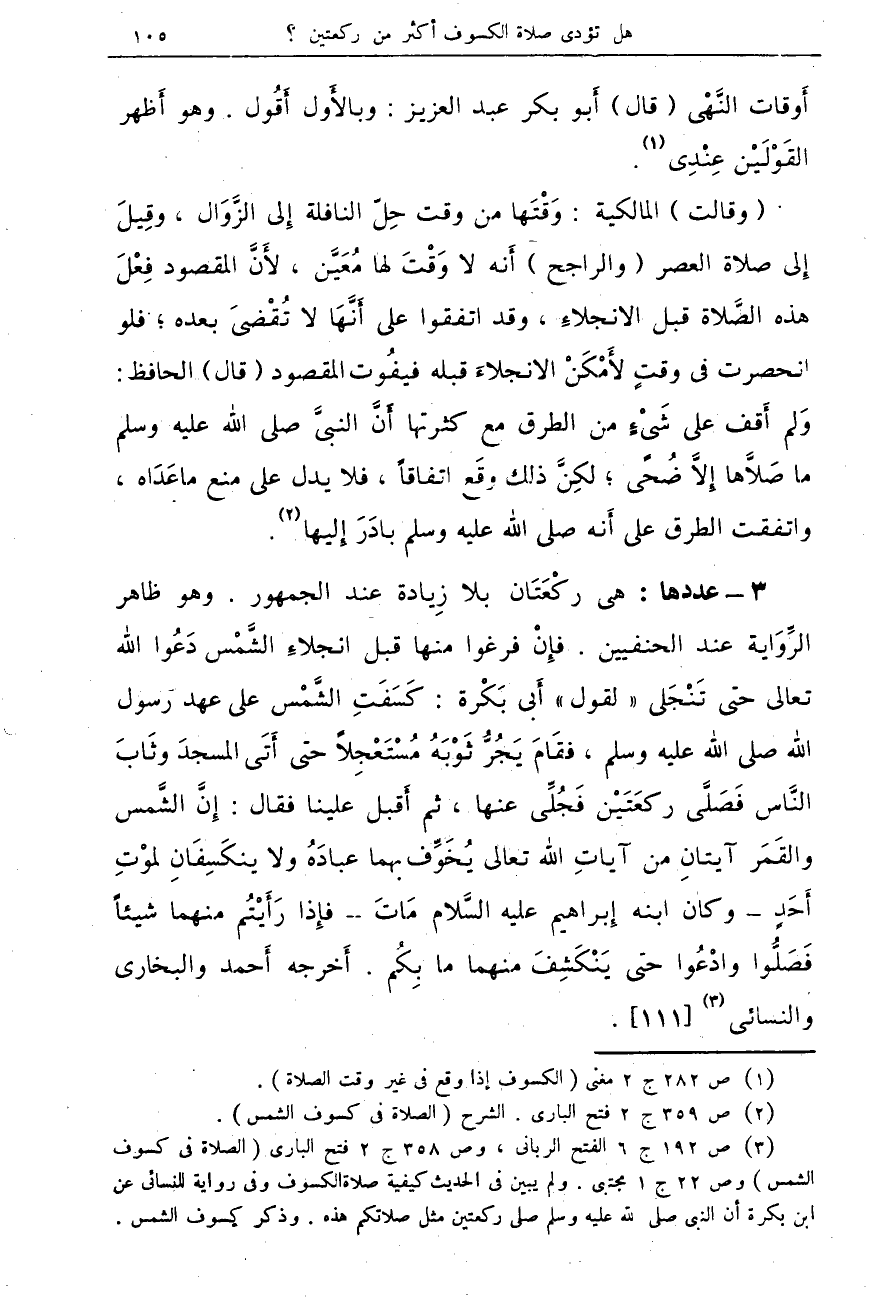 هل تؤدى صلاة الكسوف أكثر من ركعتين ؟ ١٠٥
أَوقات النَّهْى ( قال ) أَبو بكر عبد العزيز : وبالأَول أَقُول . وهو أَظهر
القَوْلَيْن عِنْدِى (١) .
( وقالت ) المالكية : وَقْتَها من وقت حِلّ النافلة إلى الزَّوَال ، وقِيلَ
إلى صلاة العصر ( والراجح ) أَنه لا وَقْتَ لها مُعَيَّن ، لأَنَّ المقصود فِعْلَ
هذه الصَّلاة قبل الانجلاءِ ، وقد اتفقوا على أَنَّهَا لا تُقْضىَ بعده ؛ فلو
انحصرت فى وقتٍ لأَمْكَنْ الانجلاءَ قبله فيفُوت المقصود ( قال ) الحافظ :
وَلم أَقف على شَىْءٍ من الطرق مع كثرتها أَنَّ النبىَّ صلى الله عليه وسلم
ما صَلاَّها إِلاَّ ضُحًى ؛ لكِنَّ ذلك وقَع اتفاقاً ، فلا يدل على منع ماعَدَاه ،
واتفقت الطرق على أَنه صلى الله عليه وسلم بادَرَ إِليها (٢) .
٣ – عددها : هى ركْعَتَان بلا زِيادة عند الجمهور . وهو ظاهر
الرِّوَاية عند الحنفيين . فإِنْ فرغوا منها قبل انجلاءِ الشَّمْس دَعُوا الله
تعالى حتى تَنْجَلى « لقول » أَبى بَكْرة : كَسَفَتِ الشَّمْس على عهد رسول
الله صلى الله عليه وسلم ، فقَامَ يَجُرُّ ثَوْبَهُ مُسْتَعْجِلاً حتى أَتَى المسجدَ وثَابَ
النَّاس فَصَلَّى ركعَتَيْن فَجُلِّى عنها ، ثم أَقبل علينا فقال : إِنَّ الشَّمس
والقَمَر آيتانِ من آياتِ الله تعالى يُخَوِّف بهما عبادَهُ ولا ينكَسِفَانِ لموْتِ
أَحَدٍ – وكان ابنه إِبراهيم عليه السَّلام مَاتَ – فإِذا رَأَيْتُم منهما شيئاً
فَصَلُّوا وادْعُوا حتى يَنْكَشِفَ منهما ما بِكُم . أَخرجه أَحمد والبخارى
والنسائى (٣) [١١١] .
(١) ص ٢٨٢ ج ٢ مغنى ( الكسوف إذا وقع فى غير وقت الصلاة ) .
(٢) ص ٣٥٩ ج ٢ فتح البارى . الشرح ( الصلاة فى كسوف الشمس ) .
(٣) ص ١٩٢ ج ٦ الفتح الربانى ، وص ٣٥٨ ج ٢ فتح البارى ( الصلاة فى كسوف
الشمس ) وص ٢٢ ج ١ مجتبى . ولم يبين فى الحديث كيفية صلاةالكسوف وفى رواية للنسائى عن
ابن بكرة أن النبى صلى لله عليه وسلم صلى ركعتين مثل صلاتكم هذه . وذكر كسوف الشمس .